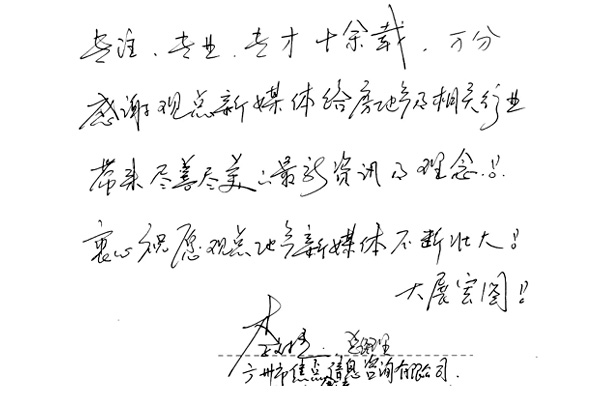 专注、专业、专才十余载，万分
感谢观点新媒体给房地产及相关行业
带来尽善尽美之最新资讯及理念！！
衷心祝愿观点地产新媒体不断壮大！
大展宏图！！
李 总经理
广州市焦点信息咨询有限公司.